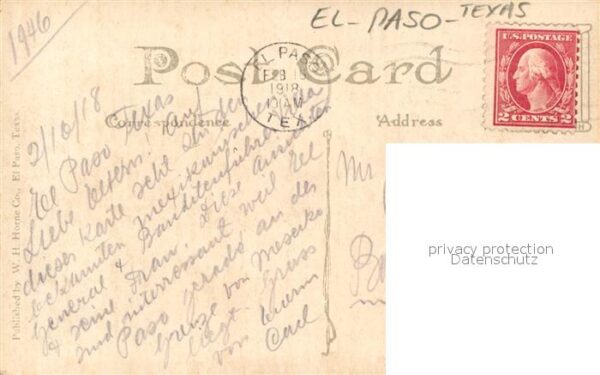 1946
EL-PASO-TEXAS
Post Card
EL PASO
FEB 1
1918
10 AM
TEX
U.S. POSTAGE
2 CENTS 2
Correspondence
Address
Published by W. H. Horne Co., El Paso, Texas.
2/10/18
El Paso Texas
Liebe Eltern! Auf
dieser Karte seht Ihr den
bekannten mexikanischen
General & Banditenführer Villa
& seine Frau. Diese Ansichten
sind interressant weil El
Paso gerade an der
Grenze von Mexiko
liegt. Gruss
von Euerm
Carl
Mr
privacy protection
Datenschutz